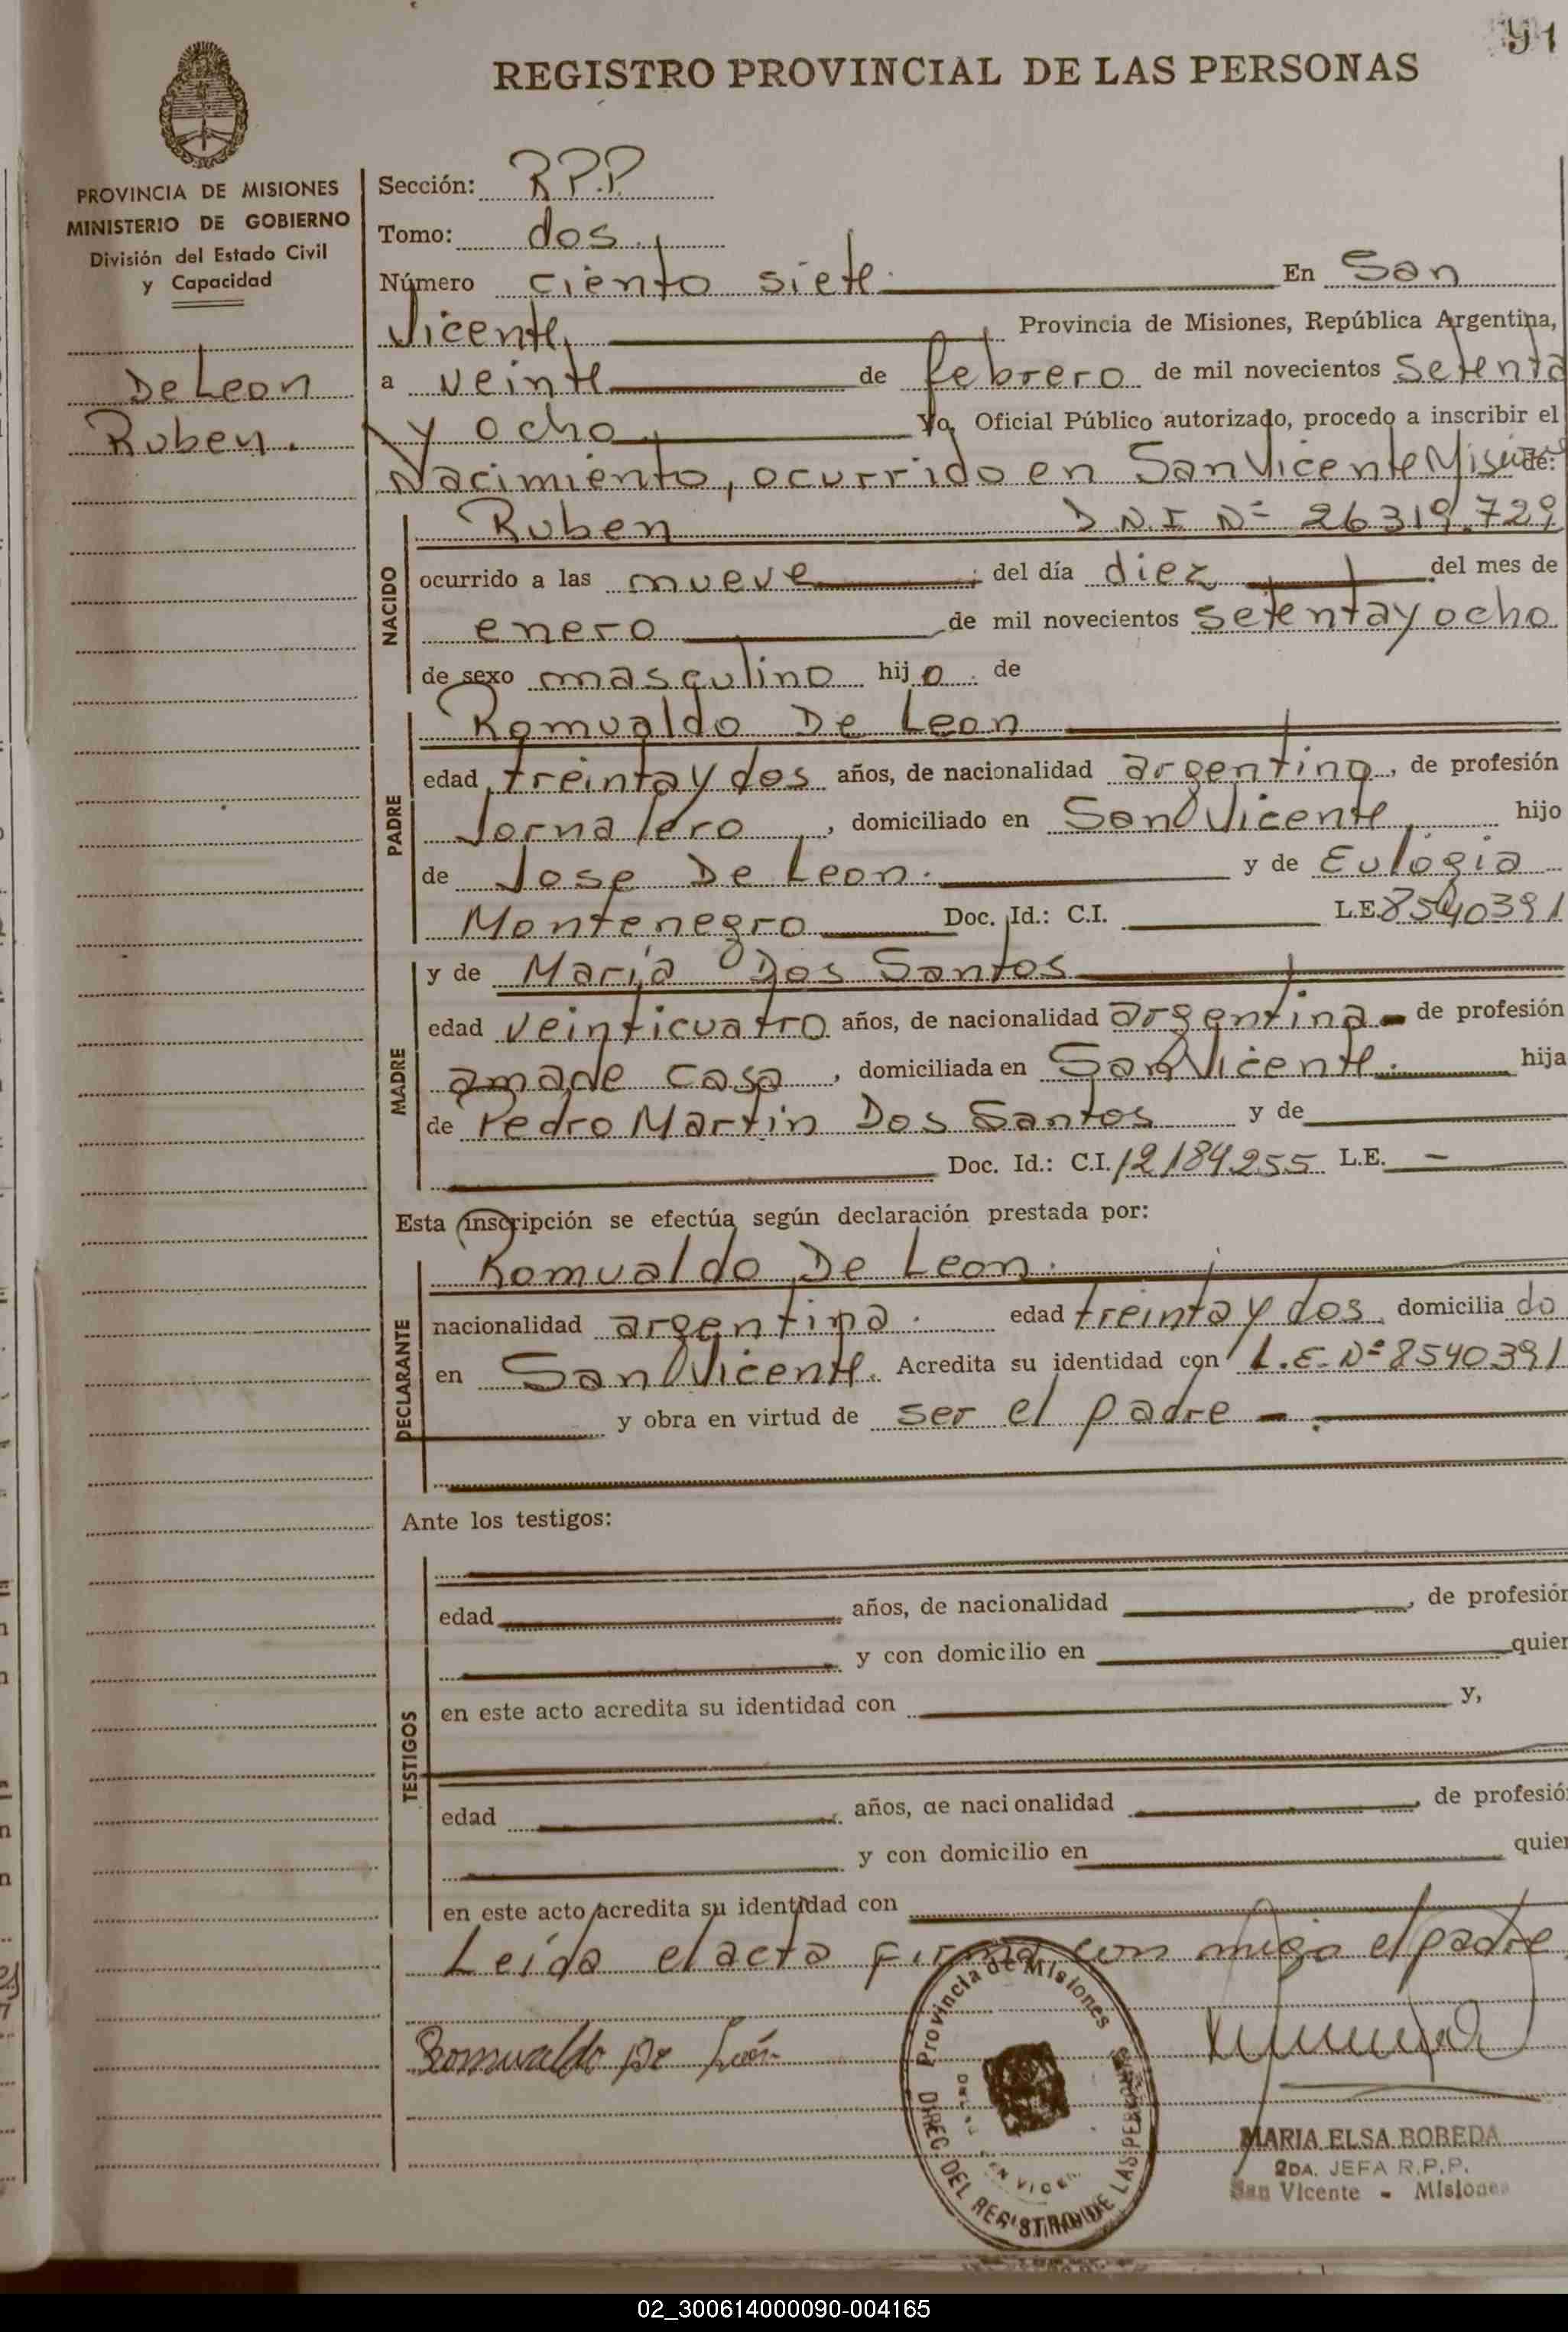 91
REGISTRO PROVINCIAL DE LAS PERSONAS
PROVINCIA DE MISIONES
MINISTERIO DE GOBIERNO
División del Estado Civil
y Capacidad
De Leon
Ruben.
Sección: R.P.P.
Tomo: dos.
Número ciento siete. En San
Vicente, Provincia de Misiones, República Argentina,
a veinte de febrero de mil novecientos setenta
y ocho, Yo, Oficial Público autorizado, procedo a inscribir el
Nacimiento, ocurrido en San Vicente Misiones de:
NACIDO
Ruben D N I Nº 26319.729
ocurrido a las nueve ; del día diez del mes de
enero de mil novecientos setenta y ocho
de sexo masculino hijo de
PADRE
Romualdo De Leon
edad treinta y dos años, de nacionalidad argentino, de profesión
Jornalero, domiciliado en San Vicente, hijo
de Jose De Leon. y de Eulogia
Montenegro Doc. Id.: C.I. L.E. 8540391
MADRE
y de Maria Dos Santos
edad veinticuatro años, de nacionalidad argentina - de profesión
ama de casa, domiciliada en San Vicente. hija
de Pedro Martin Dos Santos y de
Doc. Id.: C.I. 12184.255 L.E. -
Esta inscripción se efectúa según declaración prestada por:
DECLARANTE
Romualdo De Leon.
nacionalidad argentina. edad treinta y dos domiciliado
en San Vicente. Acredita su identidad con L.E. Nº 8540391
y obra en virtud de ser el padre - .
Ante los testigos:
TESTIGOS
edad años, de nacionalidad , de profesión
y con domicilio en quien
en este acto acredita su identidad con y,
edad años, de nacionalidad , de profesió
y con domicilio en quien
en este acto acredita su identidad con
Leida el acta firma con migo el padre.
Romualdo De León
Provincia de Misiones
DIREC. DEL REGISTRO DE LAS PERSONAS
MARIA ELSA BOBEDA
2DA. JEFA R.P.P.
San Vicente - Misiones
02_300614000090-004165